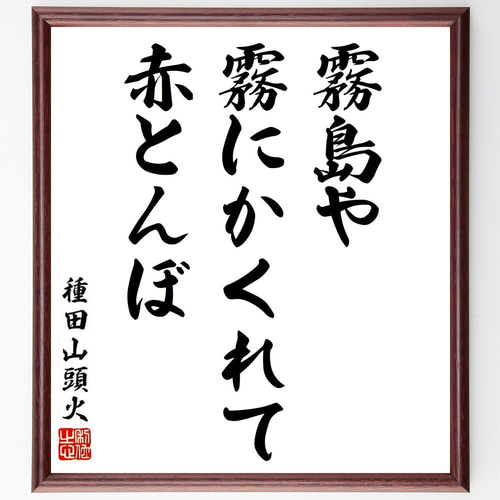 霧島や
霧にかくれて
赤とんぼ
種田山頭火